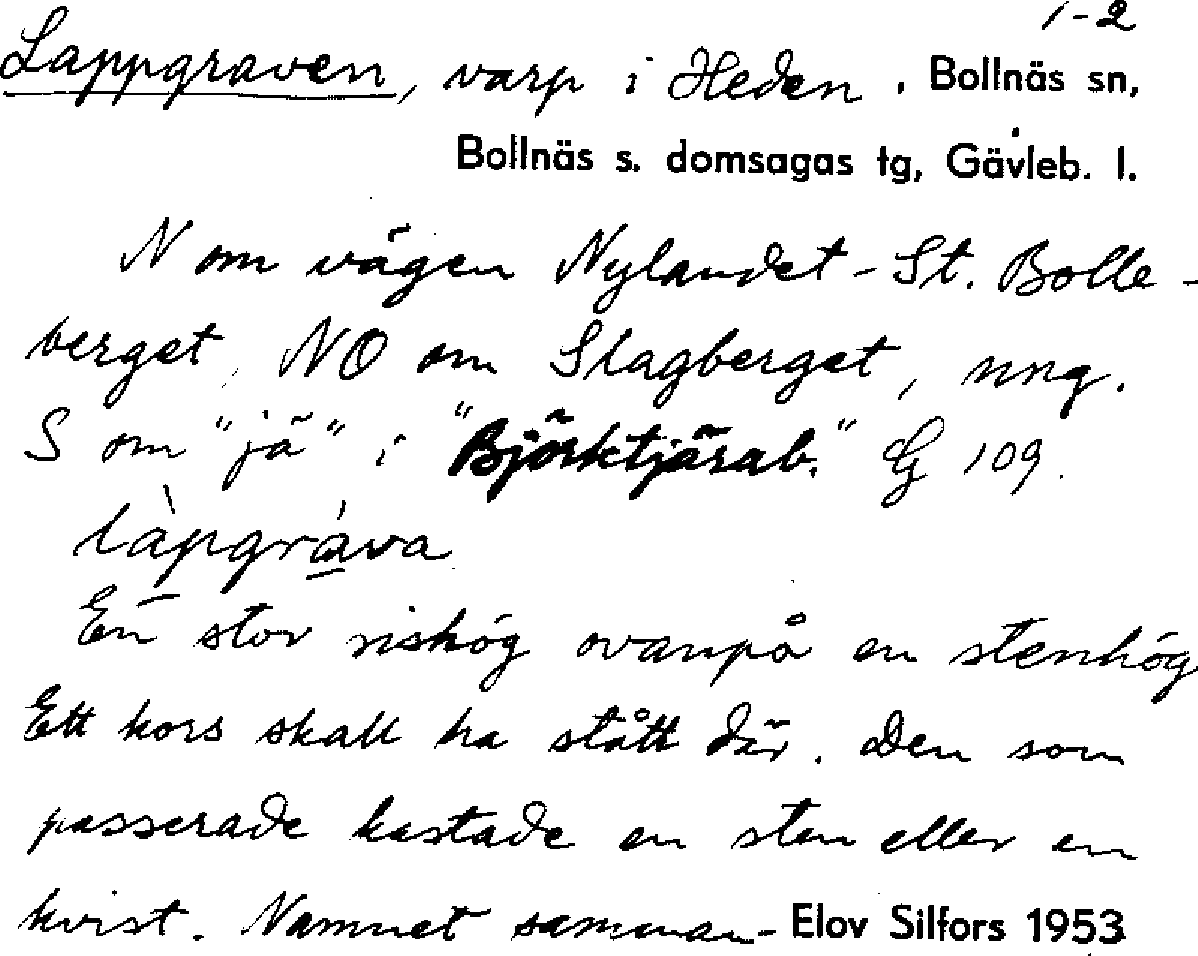 1-2
Lappgraven, varp i Heden. Bollnäs sn,
Bollnäs s. domsagas tg, Gävleb. l.
N om vägen Nylandet - St. Bolle-
berget, NO om Slagberget, ung.
S om "jä" i "Björktjärab." G 109.
làpgràva
En stor rishög ovanpå en stenhög
Ett kors skall ha stått där. Den som
passerade kastade en sten eller en
kvist. Namnet samman- Elov Silfors 1953